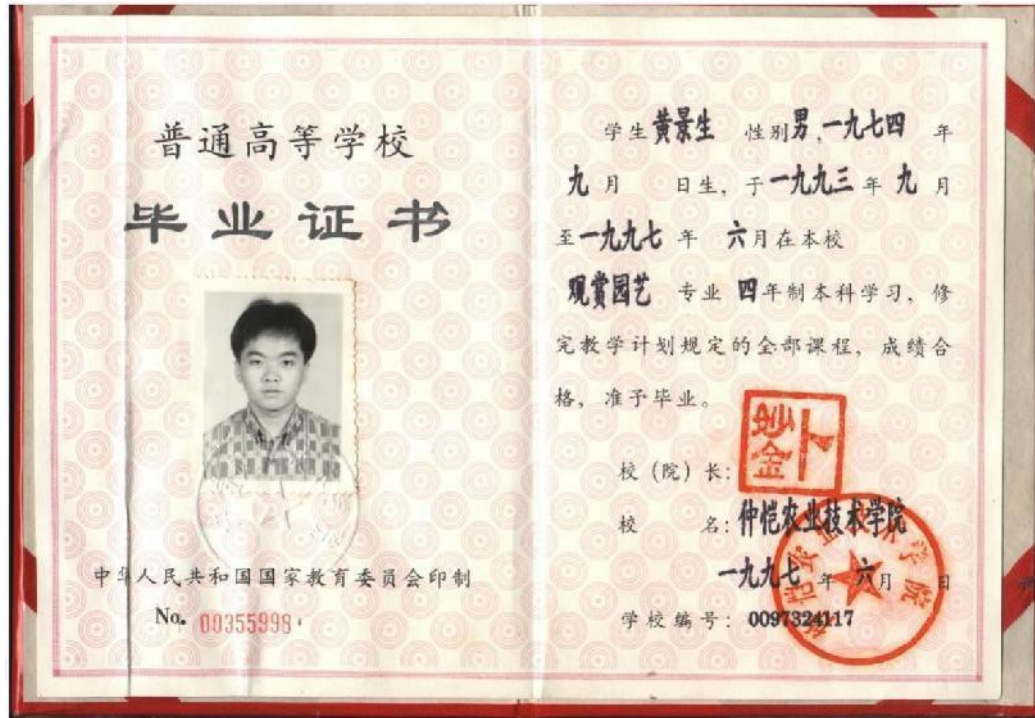 普通高等学校
毕业证书
中华人民共和国国家教育委员会印制
No. 00355998
学生黄景生 性别男,一九七四 年
九月 日生, 于一九九三年九月
至一九九七 年 六月在本校
观赏园艺 专业 四年制本科学习, 修
完教学计划规定的全部课程, 成绩合
格, 准予毕业。
校(院)长:
校 名: 仲恺农业技术学院
一九九七年 六月 日
学校编号: 0097324117
仲恺农业技术学院